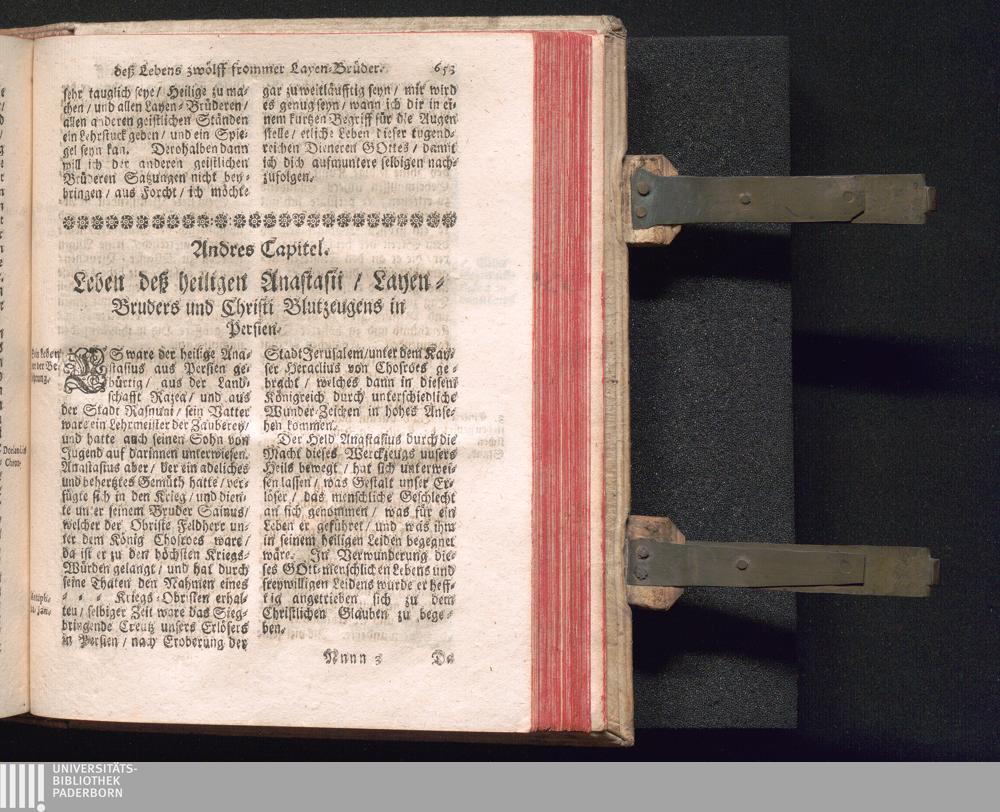 deß Lebens zwölff frommer Layen-Brüder. 653
sehr tauglich seye / Heilige zu ma-
chen / und allen Layen-Brüderen /
allen anderen geistlichen Ständen
ein Lehrstuck geben / und ein Spie-
gel seyn kan. Derohalben dann
will ich der anderen geistlichen
Brüderen Satzungen nicht bey-
bringen / aus Forcht / ich möchte
gar zu weitläufftig seyn / mir wird
es genug seyn / wann ich dir in ei-
nem kurtzen Begriff für die Augen
stelle / etliche Leben dieser tugend-
reichen Dieneren GOttes / damit
ich dich aufmuntere selbigen nach-
zufolgen.
Andres Capitel.
Leben deß heiligen Anastasii / Layen-
Bruders und Christi Blutzeugens in
Persien.
ES ware der heilige Ana-
stasius aus Persien ge-
bürtig / aus der Land-
schafft Razea / und aus
der Stadt Rasnuni / sein Vatter
ware ein Lehrmeister der Zauberey /
und hatte auch seinen Sohn von
Jugend auf darinnen unterwiesen.
Anastasius aber / der ein adeliches
und behertztes Gemüth hatte / ver-
fügte sich in den Krieg / und dien-
te unter seinem Bruder Sainus /
welcher der Obriste Feldherr un-
ter dem König Chosroes ware /
da ist er zu den höchsten Kriegs-
Würden gelangt / und hat durch
seine Thaten den Nahmen eines
Kriegs-Obristen erhal-
ten / selbiger Zeit ware das Sieg-
bringende Creutz unsers Erlösers
in Persien / nach Eroberung der
Stadt Jerusalem / unter dem Kay-
ser Heraclius von Chosroes ge-
bracht / welches dann in diesem
Königreich durch unterschiedliche
Wunder-Zeichen in hohes Anse-
hen kommen.
Der Held Anastasius durch die
Macht dieses Werckzeugs unsers
Heils bewegt / hat sich unterwei-
sen lassen / was Gestalt unser Er-
löser / das menschliche Geschlecht
an sich genommen / was für ein
Leben er geführet / und was ihm
in seinem heiligen Leiden begegnet
wäre. In Verwunderung die-
ses GOtt-menschlichen Lebens und
freywilligen Leidens wurde er heff-
tig angetrieben sich zu dem
Christlichen Glauben zu bege-
ben.
Nnnn 3 Da
UNIVERSITÄTS-
BIBLIOTHEK
PADERBORN